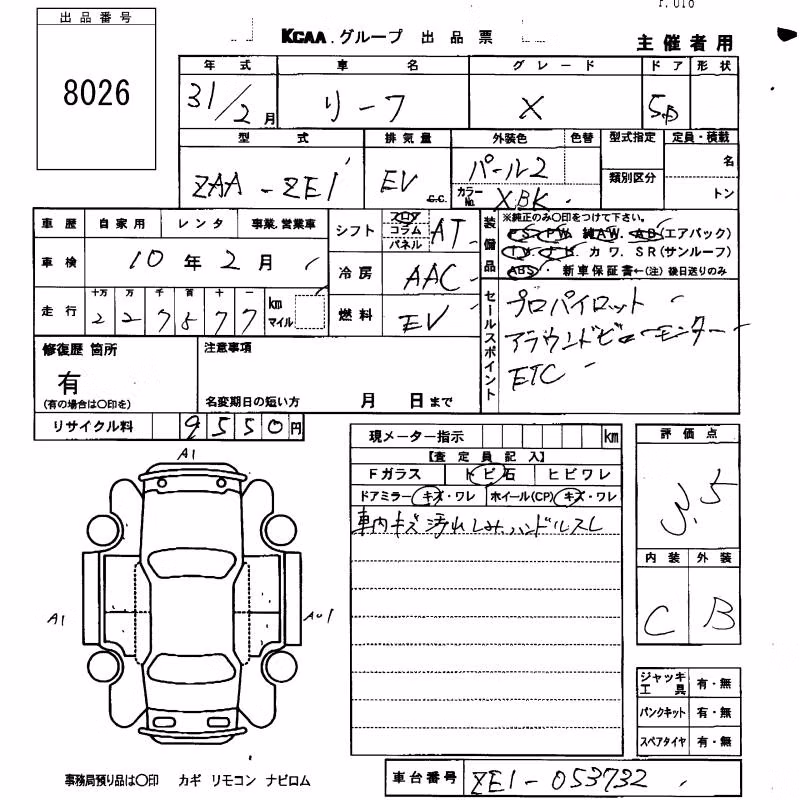 出品番号
8026
KCAA.グループ 出品票
主催者用
年式 車名 グレード ドア 形状
31/2月 リーフ X 5D
型式 排気量 外装色 色替 型式指定 定員・積載
ZAA-ZE1 EV C.C. パール2 名
カラーNo. XBK 類別区分 トン
車歴 自家用 レンタ 事業.営業車
シフト フロア コラム パネル AT
装備品 ※純正のみ〇印をつけて下さい。
PS PW 純AW. AB(エアバック)
TV ナビ カワ. SR(サンルーフ)
ABS 新車保証書←(注)後日送りのみ
車検 10年2月
冷房 AAC
走行 十万 万 千 百 十 一 km マイル
227577
燃料 EV
セールスポイント プロパイロット
アラウンドビューモニター
ETC
修復歴 箇所
有
(有の場合は〇印を)
注意事項
名変期日の短い方 月 日まで
リサイクル料 9550円
現メーター指示 km
【査定員記入】
Fガラス トビ石 ヒビワレ
ドアミラー キズ・ワレ ホイール(CP) キズ・ワレ
車内キズ汚れしみ.ハンドルスレ
評価点
3.5
内装 外装
C B
A1
A1
AU1
ジャッキ工具 有・無
パンクキット 有・無
スペアタイヤ 有・無
事務局預り品は〇印 カギ リモコン ナビロム
車台番号 ZE1-053732